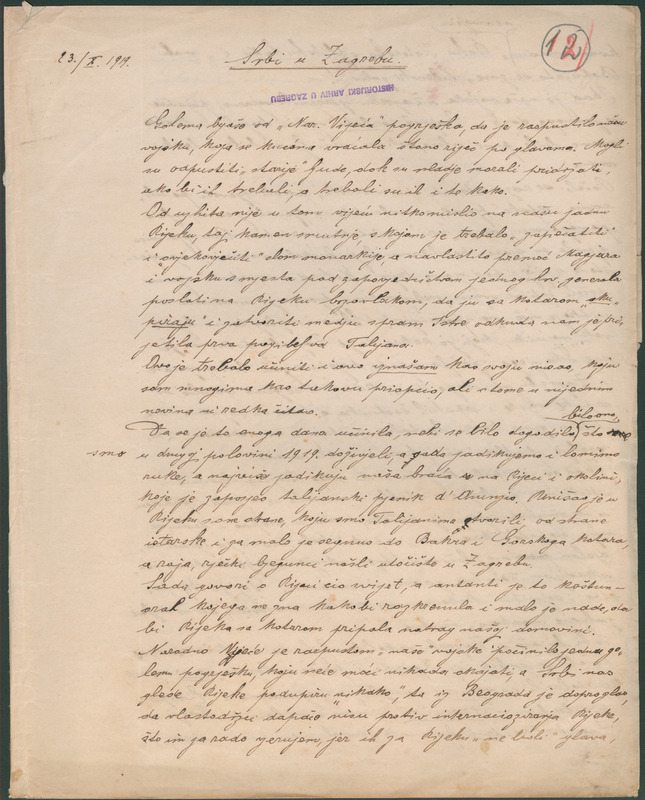 12
23./X. 1919. Srbi u Zagrebu.
HISTORIJSKI ARHIV U ZAGREBU
Golema bijaše od „Nar. Vijeća" pogrješka, da je raspustilo našu
vojsku, koja se kućama vraćala što no riječ po glavama. Mogli
su odpustiti „starije" ljude, dok su mladje morali pridržati,
ako bi ih trebali, a trebali su ih i te kako.
Od ujhita nije u tom vijeću nitko mislio na našu jadnu
Rijeku, taj kamen smutnje, s kojom je trebalo „zapečatiti"
i „ovjekovječiti" slom monarkije a navlastito premoć Magjara
i vojsku smjesta pod zapovjedništvom jednog hrv. generala
poslati na Rijeku brzovlakom, da ju sa Kotarom „oku-
piraju" i zatvoriti medju spram Istre odkuda nam je pri-
jetila prva pogibelj od Talijana.
Ovo je trebalo učiniti i ovo iznašam kao svoju misao, koju
sam mnogima kao takovu priopćio, ali o tome u nijednim
novinama ni redka čitao.
Da se je to onoga dana učinilo, nebi se bilo dogodilo bilo ono, što
smo u drugoj polovini 1919. doživjeli, a sada jadikujemo i lomimo
ruke, a najviše jadikuju naša braća na Rijeci i okolini,
koje je zaposjeo talijanski pjesnik d'Anunzio. Unišao je u
Rijeku s one strane, koju smo Talijanima otvorili, od strane
istarske i za malo je segnuo do Bakra i Gorskoga Kotara,
a raja, rječki bjegunci našli utočište u Zagrebu.
Sada govori o Rijeci cio svijet, a antanti je to koštun-
orah kojega ne zna kako bi razkomila i malo je nade, da
bi Rijeka sa Kotarom pripala natrag našoj domovini.
Narodno Vijeće je raspustom „naše" vojske počinilo jednu go-
lemu pogrješku, koju neće moći nikada okajati, a Srbi nas
glede Rijeke podupiru „nikako", ta iz Beograda je dopro glas,
da vlastodržci dapače nisu protiv internaciziranja Rijeke,
što im za rado vjerujem, jer ih za Rijeku „ne boli" glava,